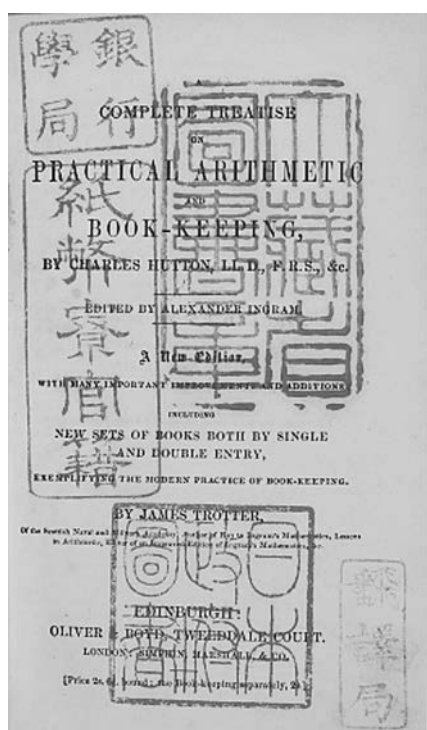 A
COMPLETE TREATISE
ON
PRACTICAL ARITHMETIC
AND
BOOK-KEEPING,
BY CHARLES HUTTON, LL.D., F.R.S., &c.
EDITED BY ALEXANDER INGRAM.
A New Edition,
WITH MANY IMPORTANT IMPROVEMENTS AND ADDITIONS;
INCLUDING
NEW SETS OF BOOKS BOTH BY SINGLE
AND DOUBLE ENTRY,
EXEMPLIFYING THE MODERN PRACTICE OF BOOK-KEEPING.
BY JAMES TROTTER,
Of the Scottish Naval and Military Academy; Author of Key to Ingram's Mathematics, Lessons
in Arithmetic, Editor of an Improved Edition of Ingram's Mathematics, &c.
EDINBURGH:
OLIVER & BOYD, TWEEDDALE COURT.
LONDON: SIMPKIN, MARSHALL, & CO.
[Price 2s. 6d. bound; the Book-keeping separately, 2s.]
銀行
學局
紙幣寮官籍
大藏省
圖書
飜譯局